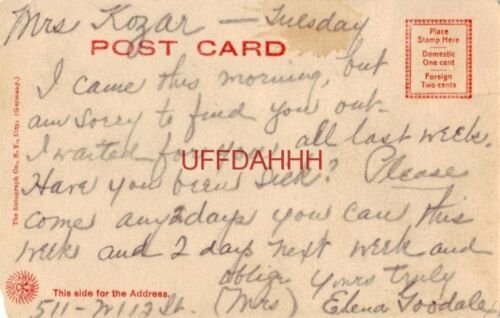 Mrs Kozar — Tuesday
POST CARD
Place
Stamp Here
Domestic
One cent
Foreign
Two cents
I came this morning, but
am sorry to find you out.
I waited for you all last week.
UFFDAHHH
Have you been sick? Please
come any 2 days you can this
week and 2 days next week and
oblige yours truly
(Mrs) Elena Goodale
511 - W 113 St.
This side for the Address.
The Rotograph Co., N. Y., City. (Germany.)